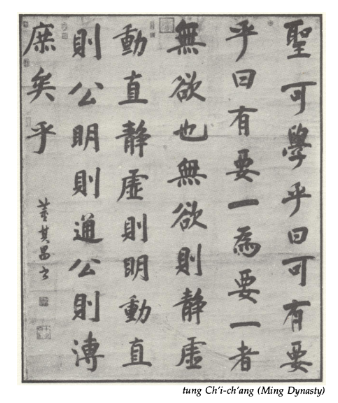 聖可學乎曰可有要
乎曰有要一為要一者
無欲也無欲則静虛
動直静虛則明動直
則公明則通公則溥
庶矣乎
董其昌書
tung Ch'i-ch'ang (Ming Dynasty)